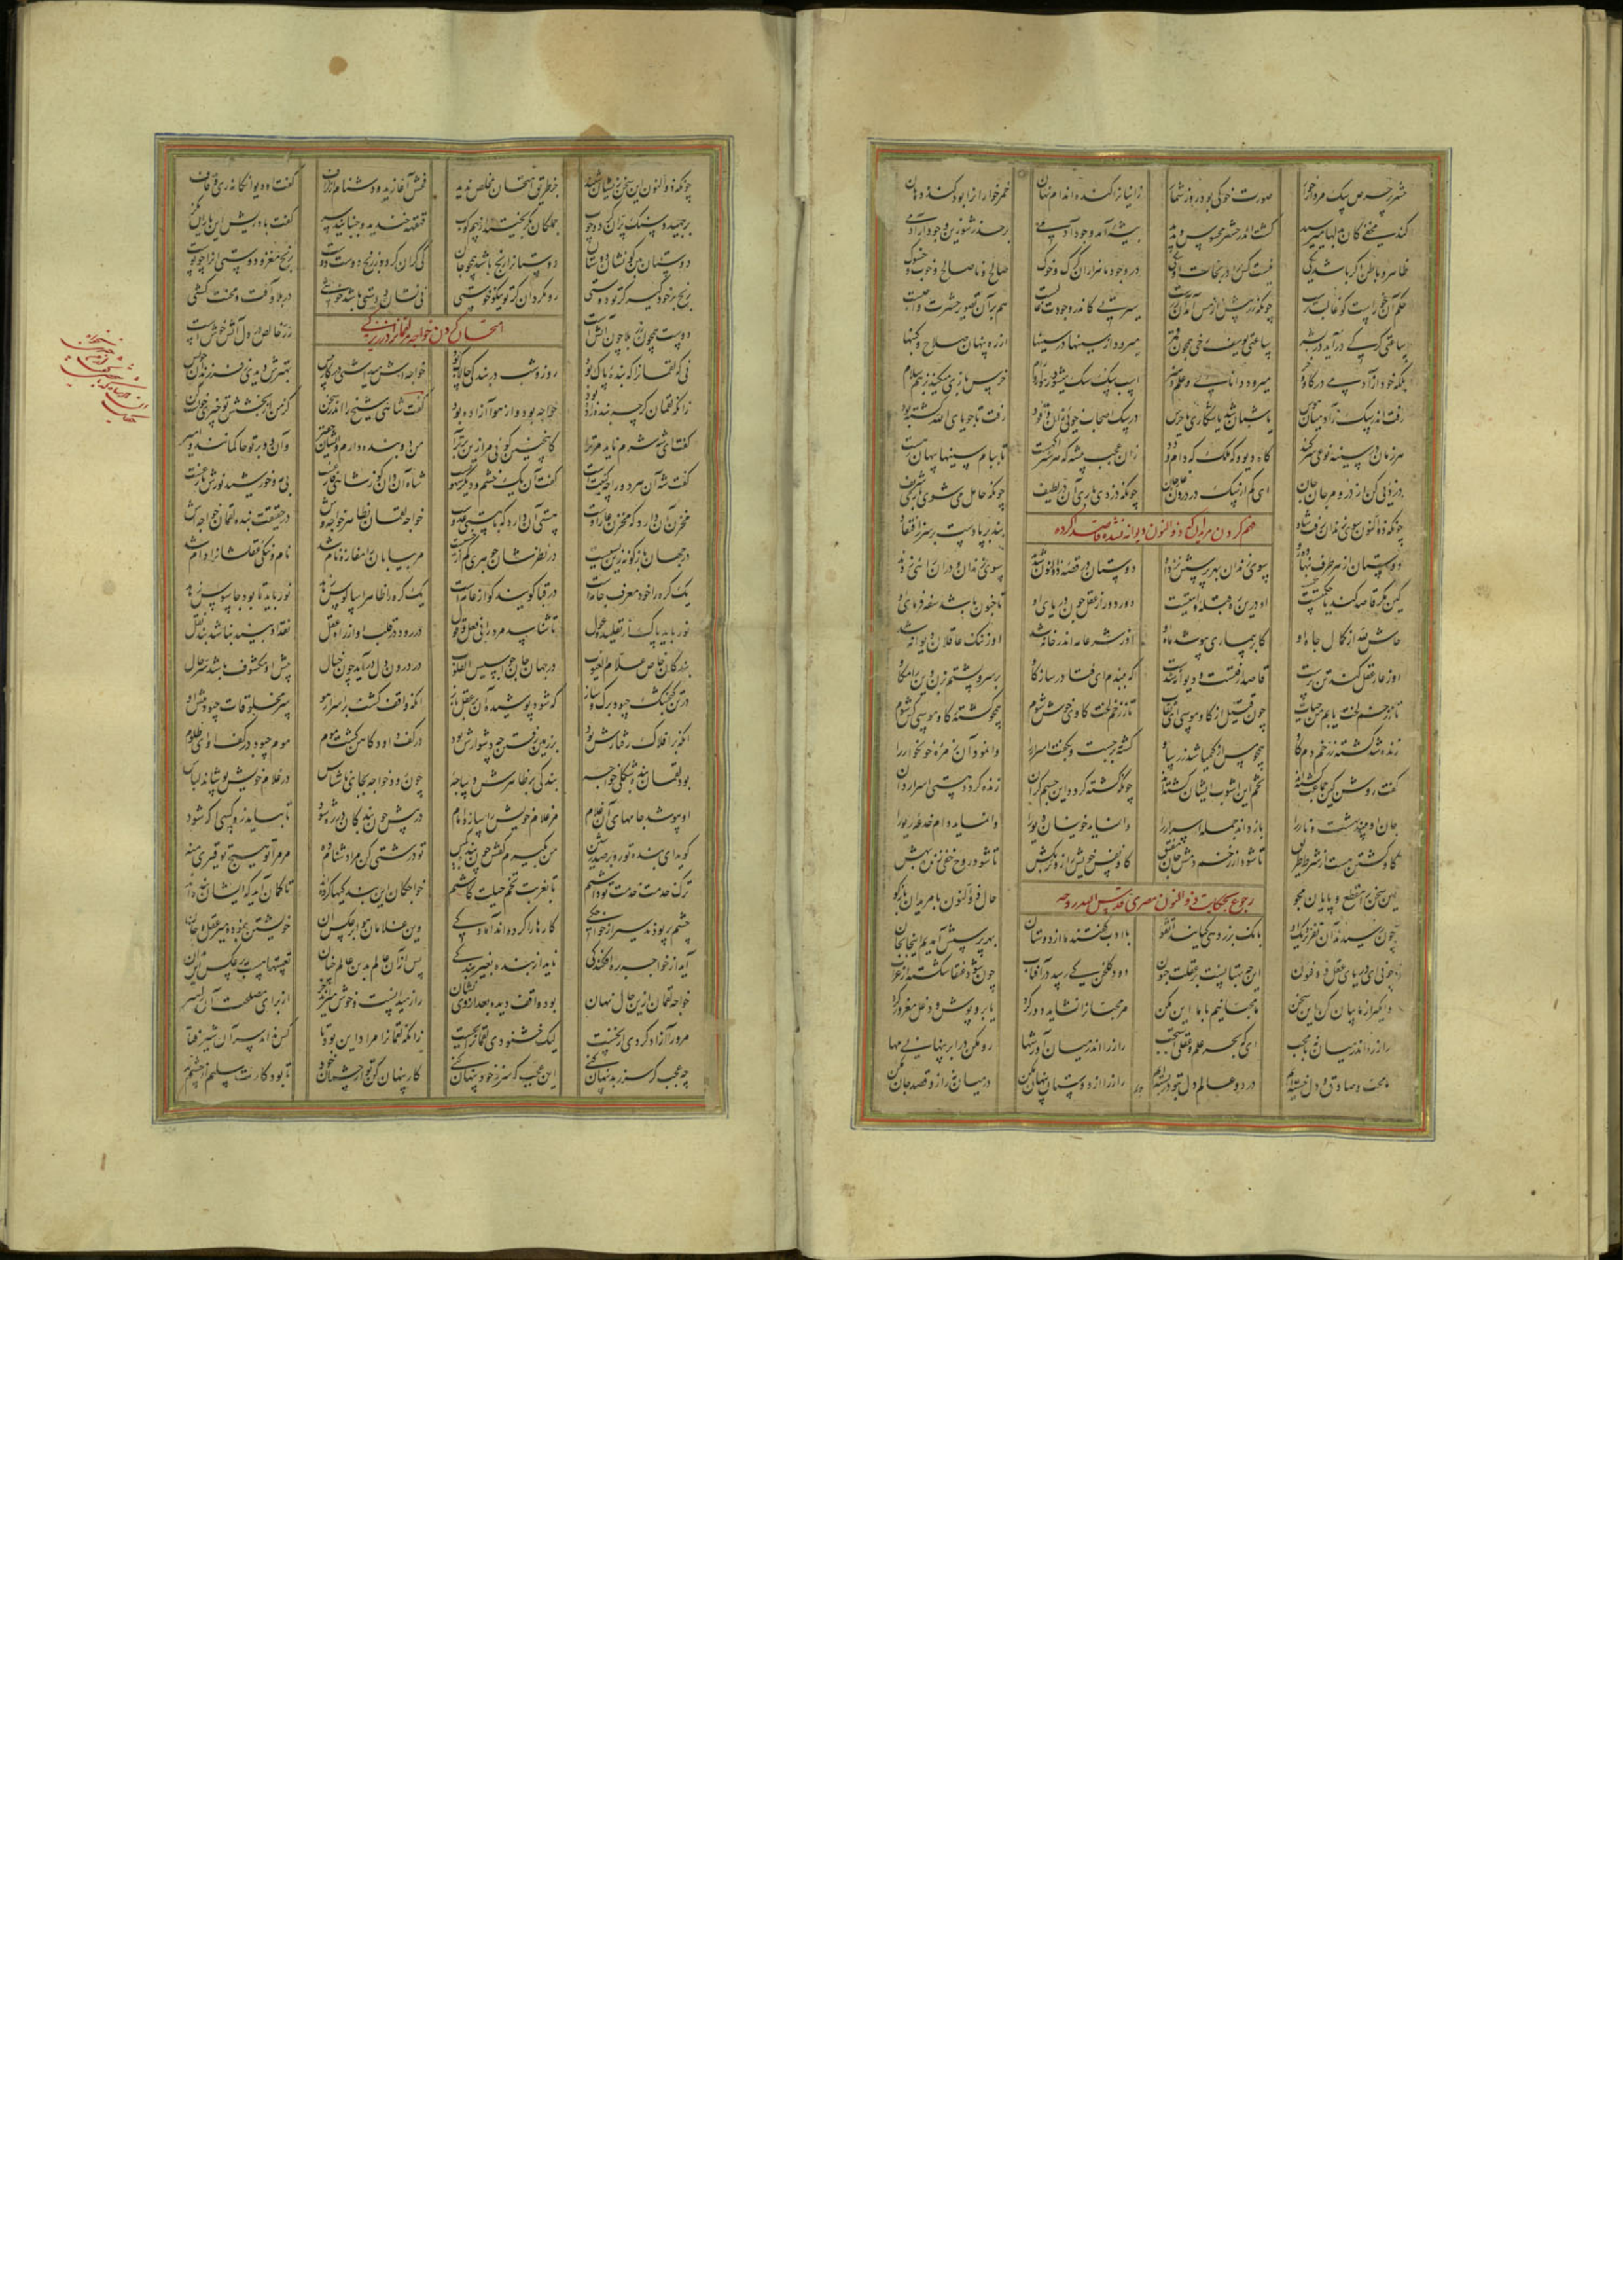 حشر پر حرص سگ مردار خوار صورت خوکی بود روز شمار زانیانرا کنده اندام نهان خمرخوارانرا بود کنده دهان
کند مخفی کان بدلها میرسید کشت اندر حشر محسوس و پدید بیشه آمد وجود آدمی برحذر شو زین وجود ار آدمی
ظاهر و باطن اکر باشد یکی نیست کس را در نجات او شکی در وجود ما هزاران کرک و خوک صالح و ناصالح و خوب و خشوک
حکم آن خو راست کو غالب ترست چونکه زر بیش از مس آمد آن زرست سیرتی کاندر وجودت غالبست هم بر آن تصویر حشرت واجبست
ساعتی کرکی در آید در بشر ساعتی یوسف رخی همچون قمر میرود از سینها در سینها از ره پنهان صلاح و کینها
بلکه خود از آدمی در کاو و خر میرود دانایی و علم و هنر اسب سکسک میشود رهوار و رام خرس بازی میکند بز هم سلام
رفت اندر سک ز آدمیان هوس تا شبان شد یا شکاری یا حرس در سک اصحاب خویی زان وفود رفت تا جویای الله کشته بود
هر زمان در سینه نوعی سر کند کاه دیو و که ملک که دام و دد زان عجب بیشه که هر شیر آکهست تا بدام سینها پنهان رهست
دزدیی کن از درون مرجان جان ای کم از سک از درون عارفان چونکه دزدی باری آن در لطیف چونکه حامل میشوی باری شریف
چونکه ذوالنون سوی زندان رفت شاد بند بر پا دست بر سر ز افتقاد
فهم کردن مریدان که ذوالنون دیوانه نشد قاصد کرده
دوستان از هر طرف بنهاده رو سوی زندان بهر پرسش نزد او دوستان در قصه ذوالنون شدند سوی زندان و در آن رایی زدند
کین مکر قاصد کند یا حکمتیست او درین ره قبله و آیتیست دور دور از عقل چون دریای او تا جنون باشد سفه فرمای او
حاش لله از کمال جاه او کابر بیماری بپوشد ماه او او ز شر عامه اندر خانه شد او ز ننک عاقلان دیوانه شد
او ز عار عقل کند تن پرست قاصدا رفتست و دیوانه شدست که ببندم ای فتا وز ساز کاو بر سر و پشتم بزن وین را مکاو
تا ز زخم لخت یابم من حیات چون قتیل از کاو موسی ای ثقات تا ز زخم لخت کاوی خوش شوم همچو کشته کاو موسی کش شوم
زنده شد کشته ز زخم دم کاو همچو مس از کیمیا شد زر ساو کشته برجست و بکفت اسرار را وا نمود آن زمره خونخوار را
کفت روشن کین جماعت کشته‌اند تخم این آشوب ایشان کشته‌اند چونکه کشته کردد این جسم کران زنده کردد هستی اسراردان
جان او بیند بهشت و نار را باز داند جمله اسرار را وا نماید خونیان دیو را وا نماید دام خدعه و ریو را
کاو کشتن هست از شرط طریق تا شود از زخم دمش جان مفیق کاو نفس خویش را زوتر بکش تا شود روح خفی زنده بهش
این سخن را مقطع و پایان مجو حال ذوالنون با مریدان بازکو
رجوع بحکایت ذوالنون مصری قدس الله روحه
چون رسیدند آن نفر نزدیک او بانک بر زد هی کیانید اتقو با ادب کفتند ما از دوستان بهر پرسش آمدیم اینجا بجان
چونی ای دریای عقل ذوفنون این چه بهتانست بر عقلت جنون دود کلخن کی رسد در آفتاب چون شود عنقا شکسته از غراب
وا مکیر از ما بیان کن این سخن ما محبانیم با ما این مکن مر محبانرا نشاید دور کرد یا بروپوش و دغل مغرور کرد
راز را اندر میان نه با محب ای که بحر علم و عقلی استجب راز را اندر میان آور شها رو مکن در ابر پنهانی مها
ما محب و صادق و دل خسته ایم در دو عالم دل بتو در بسته ایم راز را از دوستان پنهان مکن در میان نه راز و قصد جان مکن
چونکه ذوالنون این سخن زیشان شنید جز طریق امتحان مخلص ندید فحش آغازید و دشنام از کزاف کفت او دیوانکانه زی و قاف
برجهید و سنک پران کرد و چوب جملکان بکریختند از بیم کوب قهقهه خندید و جنبانید سر کفت باد ریش این یاران نکر
دوستان بین کو نشان دوستان دوستانرا رنج باشد همچو جان کی کران کیرد ز رنج دوست دوست رنج مغز و دوستی آنرا چو پوست
رنج بر خود کیر کر تو دوستی رو مکردان کر تو نیکو خوستی نی نشان دوستی باشد خوشی در بلا و آفت و محنت کشی
دوست همچون زر بلا چون آتشست زر خالص در دل آتش خوشست
امتحان کردن خواجه لقمانرا در زیرکی
نی که لقمانرا که بنده پاک بود روز و شب در بندکی چالاک بود خواجه‌اش می داشتی در کار پیش بهترش دیدی ز فرزندان خویش
زانکه لقمان کرچه بنده زاد بود خواجه بود و از هوا آزاد بود کفت شاهی شیخ را اندر سخن کز من از بخشش تو چیزی خواست کن
کفت ای شه شرم ناید مر ترا کاین چنین کوئی مرا زین برتر آ من دو بنده دارم و ایشان حقیر وان دو بر تو حاکمانند و امیر
کفت شه آن هر دو کفت آن یک خشم و دیکر شهوتست شاه آن دان کو ز شاهی فارغست بی مه و خورشید نورش بازغست
مخزن آن دارد که مخزن عار اوست هستی آن دارد که با هستی عدوست خواجه لقمان بظاهر خواجه وش در حقیقت بنده لقمان خواجه اش
در جهان بازکونه زین بسیست در نظرشان کوهری کم از خسیست مر بیابان را مفازه نام شد نام و ننکی عقلشانرا دام شد
یک کره را خود معرف جامه است در قبا کویند کو از عامه است یک کره را ظاهر سالوس زهد نور باید تا بود جاسوس زهد
نور باید پاک از تقلید و غول تا شناسد مرد را بی فعل و قول در رود در قلب او از راه عقل نقد او بیند نباشد بند نقل
بندکان خاص علام الغیوب در جهان جان جواسیس القلوب در درون دل در آید چون خیال پیش او مکشوف باشد سر حال
در تن کنجشک چبود برک و ساز که شود پوشیده آن بر عقل باز آنکه واقف کشت بر اسرار هو سر مخلوقات چبود پیش او
آنکه بر افلاک رفتارش بود بر زمین رفتن چه دشوارش بود در کف داود کاهن کشت موم موم چبود در کف او ای ظلوم
بود لقمان بنده شکلی خواجه بندکی بر ظاهرش دیباجه چون رود خواجه بجای ناشناس در غلام خویش پوشاند لباس
او بپوشد جامهای آن غلام مر غلام خویش را سازد امام در پیش چون بندکان در ره شود تا نباید زو کسی آکه شود
کوید ای بنده تو رو بر صدر شین من بکیرم کفش چون بنده کمین تو درشتی کن مرا دشنام ده مر مرا تو هیچ توقیری منه
ترک خدمت خدمت تو داشتم تا بغربت تخم حیلت کاشتم خواجکان این بندکیها کرده اند تا کمان آید که ایشان بنده اند
چشم پر بودند و سیر از خواجکی کارها را کرده اند آمادکی وین غلامان هوا بر عکس آن خویشتن بنموده میر عقل و جان
آید از خواجه ره افکندکی ناید از بنده بغیر بندکی پس از آن عالم بدین عالم چنان تعبیتها هست بر عکس این بدان
خواجه لقمان ازین حال نهان بود واقف دیده بد از وی نشان راز میدانست و خوش میراند خر از برای مصلحت آن راهبر
مر ورا آزاد کردی از نخست لیک خشنودی لقمانرا بجست زانکه لقمانرا مراد این بود تا کس نداند سر آن شیر و فتا
چه عجب کر سر ز بد پنهان کنی این عجب که سر ز خود پنهان کنی کار پنهان کن تو از چشمان خود تا بود کارت سلیم از چشم بد